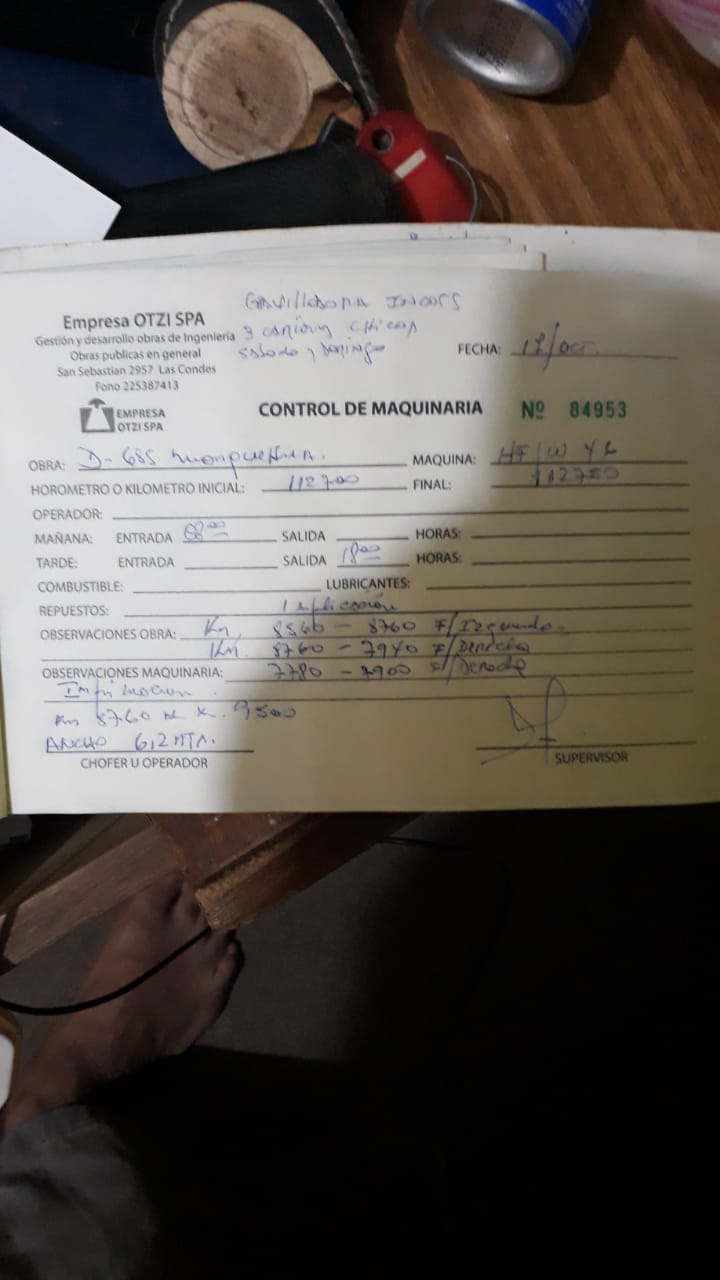 Empresa OTZI SPA
Gestión y desarrollo obras de Ingeniería
Obras publicas en general
San Sebastian 2957 Las Condes
Fono 225387413
EMPRESA
OTZI SPA
3 camiones chicos
sabado y Domingo
FECHA: 17/oct.
CONTROL DE MAQUINARIA Nº 84953
OBRA: D-685 MAQUINA:
HOROMETRO O KILOMETRO INICIAL: 112700 FINAL: 112750
OPERADOR:
MAÑANA: ENTRADA 08:00 SALIDA HORAS:
TARDE: ENTRADA SALIDA 18:00 HORAS:
COMBUSTIBLE: LUBRICANTES:
REPUESTOS:
OBSERVACIONES OBRA: Km, 8560 - 8760 F/Izquierdo.
Km. 8760 - 7940 F/Derecho
OBSERVACIONES MAQUINARIA: 7780 - 7900 F/Derecho
Imprimacion.
Km 8760 al K. 9500
ANCHO 6,2 MTR.
CHOFER U OPERADOR
SUPERVISOR